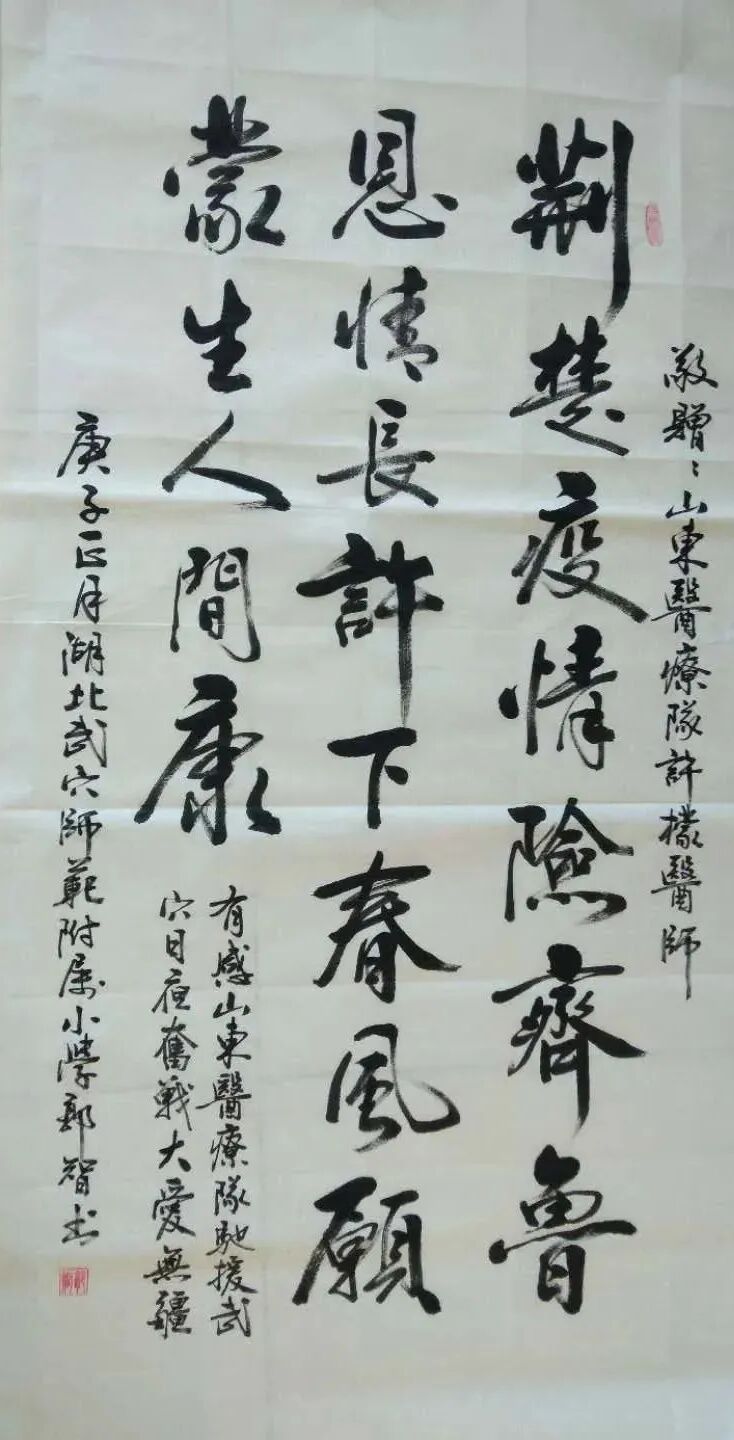 敬贈:山東醫療隊許檬醫師
荆楚疫情險齊魯
恩情長許下春風願
蒙生人間康
有感山東醫療隊馳援武
穴日夜奮戰大愛無疆
庚子正月湖北武穴師範附属小學郭智书